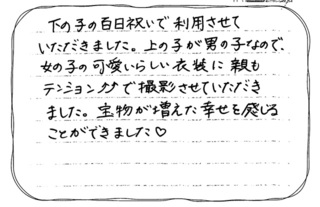 下の子の百日祝いで利用させて
いただきました。上の子が男の子なので、
女の子の可愛いらしい衣装に親も
テンション⤴⤴で撮影させていただき
ました。宝物が増えた幸せを感じる
ことができました♡